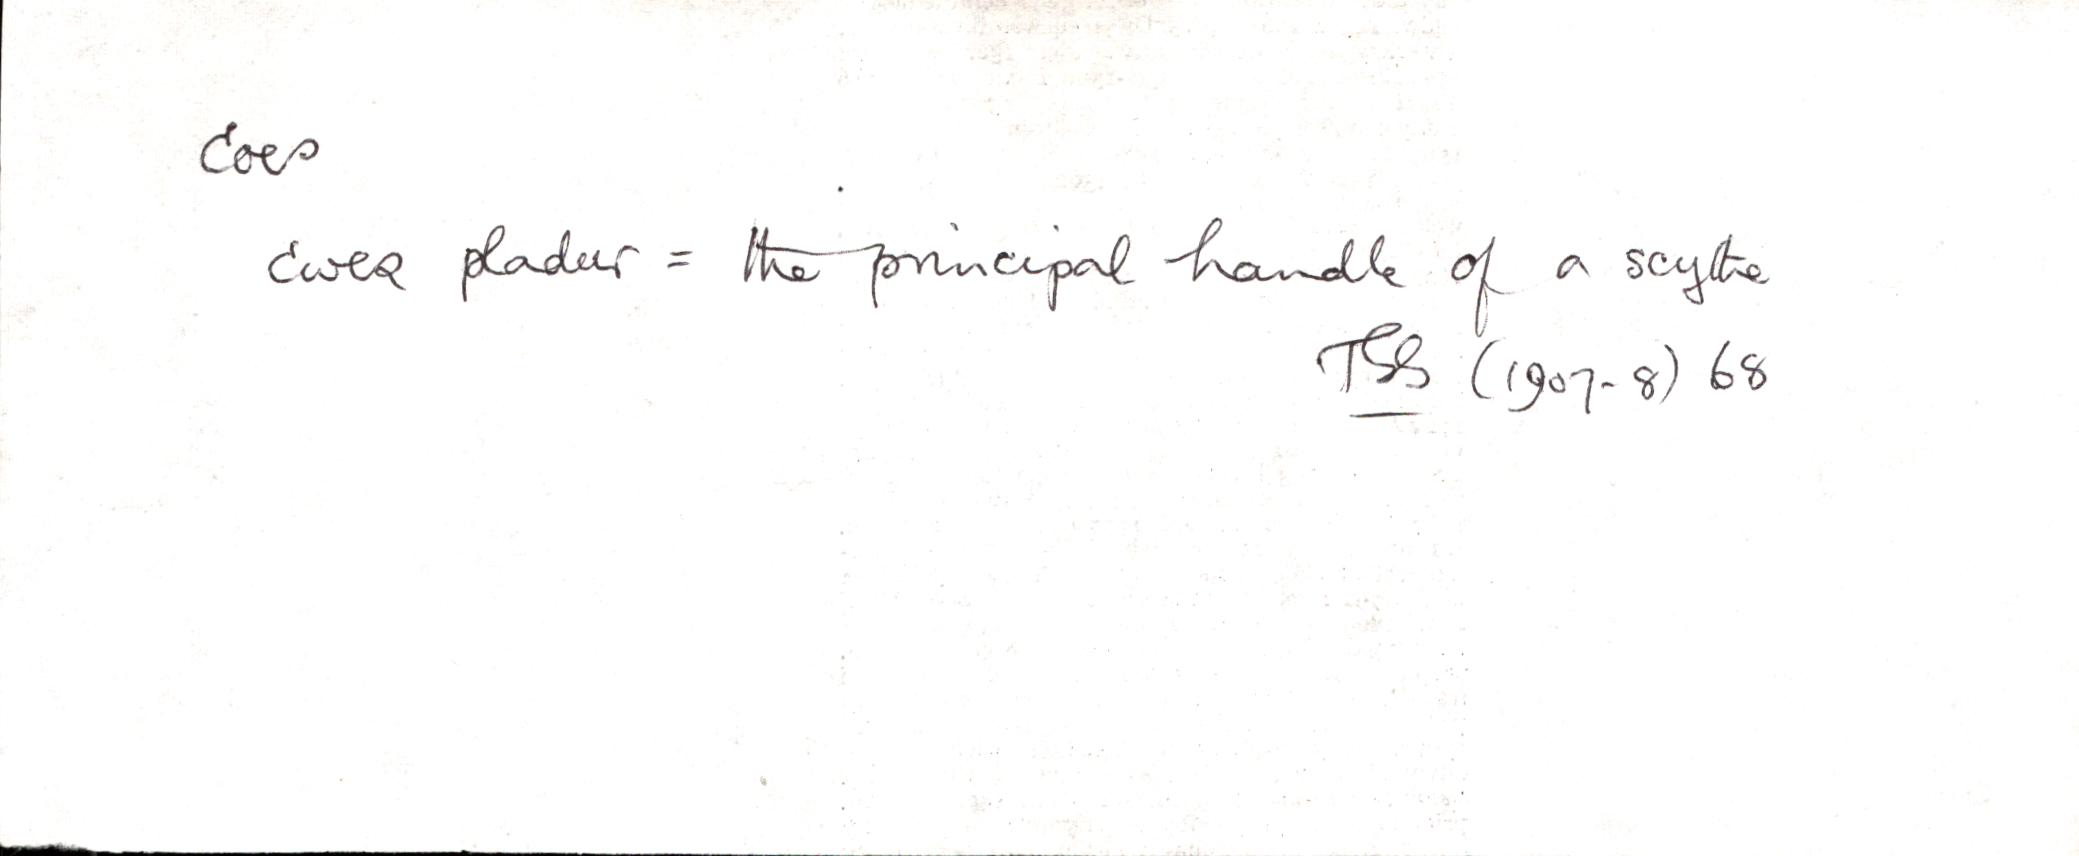 Coes
Cwes pladur = the principal handle of a scythe
TSS (1907-8) 68